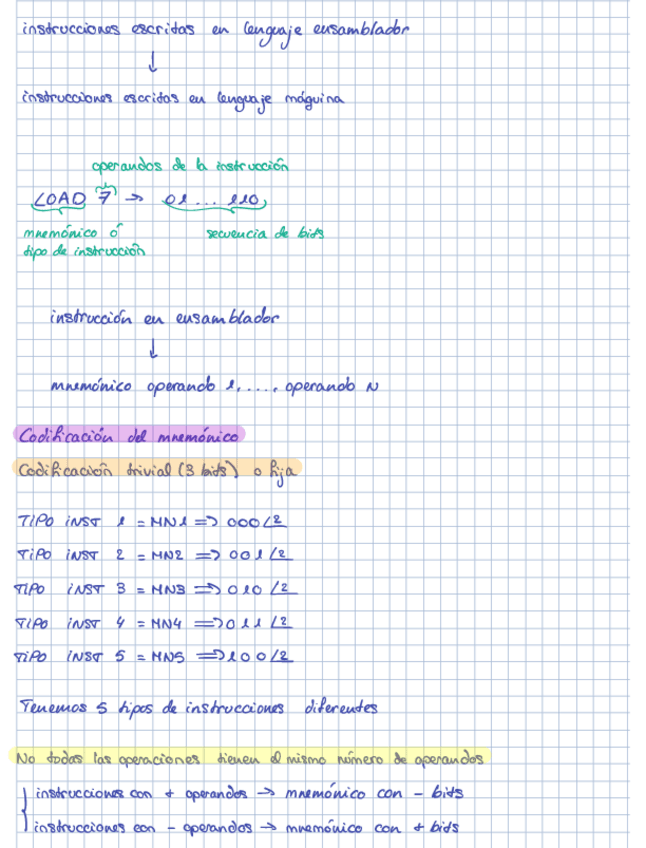 instrucciones escritas en lenguaje ensamblador
↓
instrucciones escritas en lenguaje máquina
operandos de la instrucción
LOAD 7 → 01 ... 110
mnemónico ó secuencia de bits
tipo de instrucción
instrucción en ensamblador
↓
mnemónico operando 1, ..., operando N
Codificación del mnemónico
Codificación trivial (3 bits) o fija
TIPO INST 1 = MN1 => 000/2
TIPO INST 2 = MN2 => 001/2
TIPO INST 3 = MN3 => 010/2
TIPO INST 4 = MN4 => 011/2
TIPO INST 5 = MN5 => 100/2
Tenemos 5 tipos de instrucciones diferentes
No todas las operaciones tienen el mismo número de operandos
instrucciones con + operandos → mnemónico con - bits
instrucciones con - operandos → mnemónico con + bits